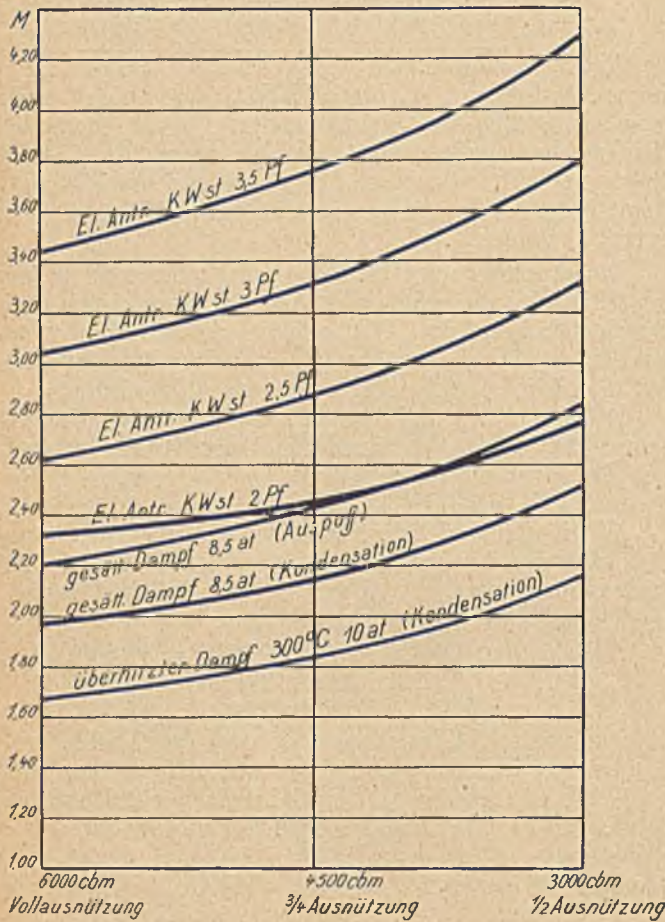 M
4,20
4,00
3,80
3,60
3,40
3,20
3,00
2,80
2,60
2,40
2,20
2,00
1,80
1,60
1,40
1,20
1,00
El. Antr. KWst 3,5 Pf
El. Antr. KWst 3 Pf
El. Antr. KWst 2,5 Pf
El. Antr. KWst 2 Pf
gesätt. Dampf 8,5 at (Auspuff)
gesätt. Dampf 8,5 at (Kondensation)
überhitzter Dampf 300°C 10 at (Kondensation)
6000 cbm 4500 cbm 3000 cbm
Vollausnützung 3/4 Ausnützung 1/2 Ausnützung